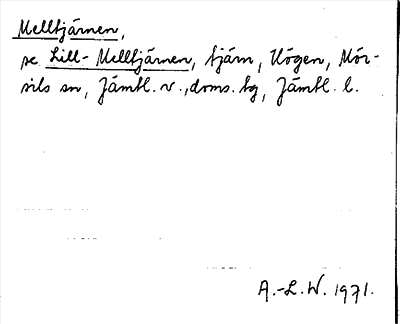 Melltjärnen,
se Lill-Melltjärnen, tjärn, Högen, Mör-
sils sn, Jämtl. v., doms. tg, Jämtl. l.
A.-L.W. 1971.